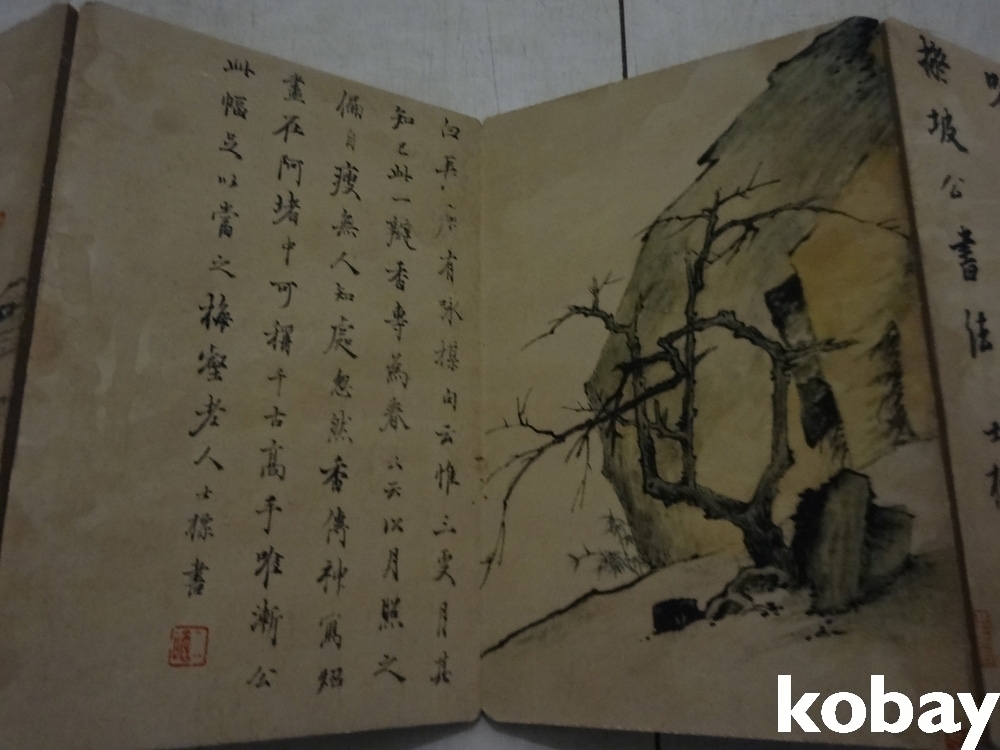 坡公書法
有詠楳句云惟三更月其
知己此一瓣香專為春又云以月照之
偏自瘦無人知處忽然香傳神寫炤
盡在阿堵中可稱千古高手唯漸公
此幅足以當之梅壑老人士標書
kobay